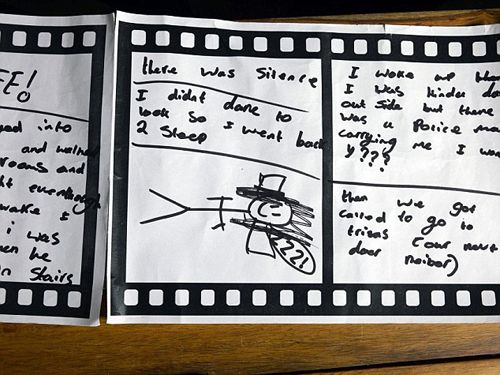 FE!
into
and walked
rooms and
everything
wake I
i was
when he
Stairs
there was Silence
I didnt dare to
look so I went back
2 Sleep
ZZZ
I woke up
I was kinda
out Side but there
was a Police man
carrying me I wan
y???
then we got
called to go to
trinas (our next
door neibor)